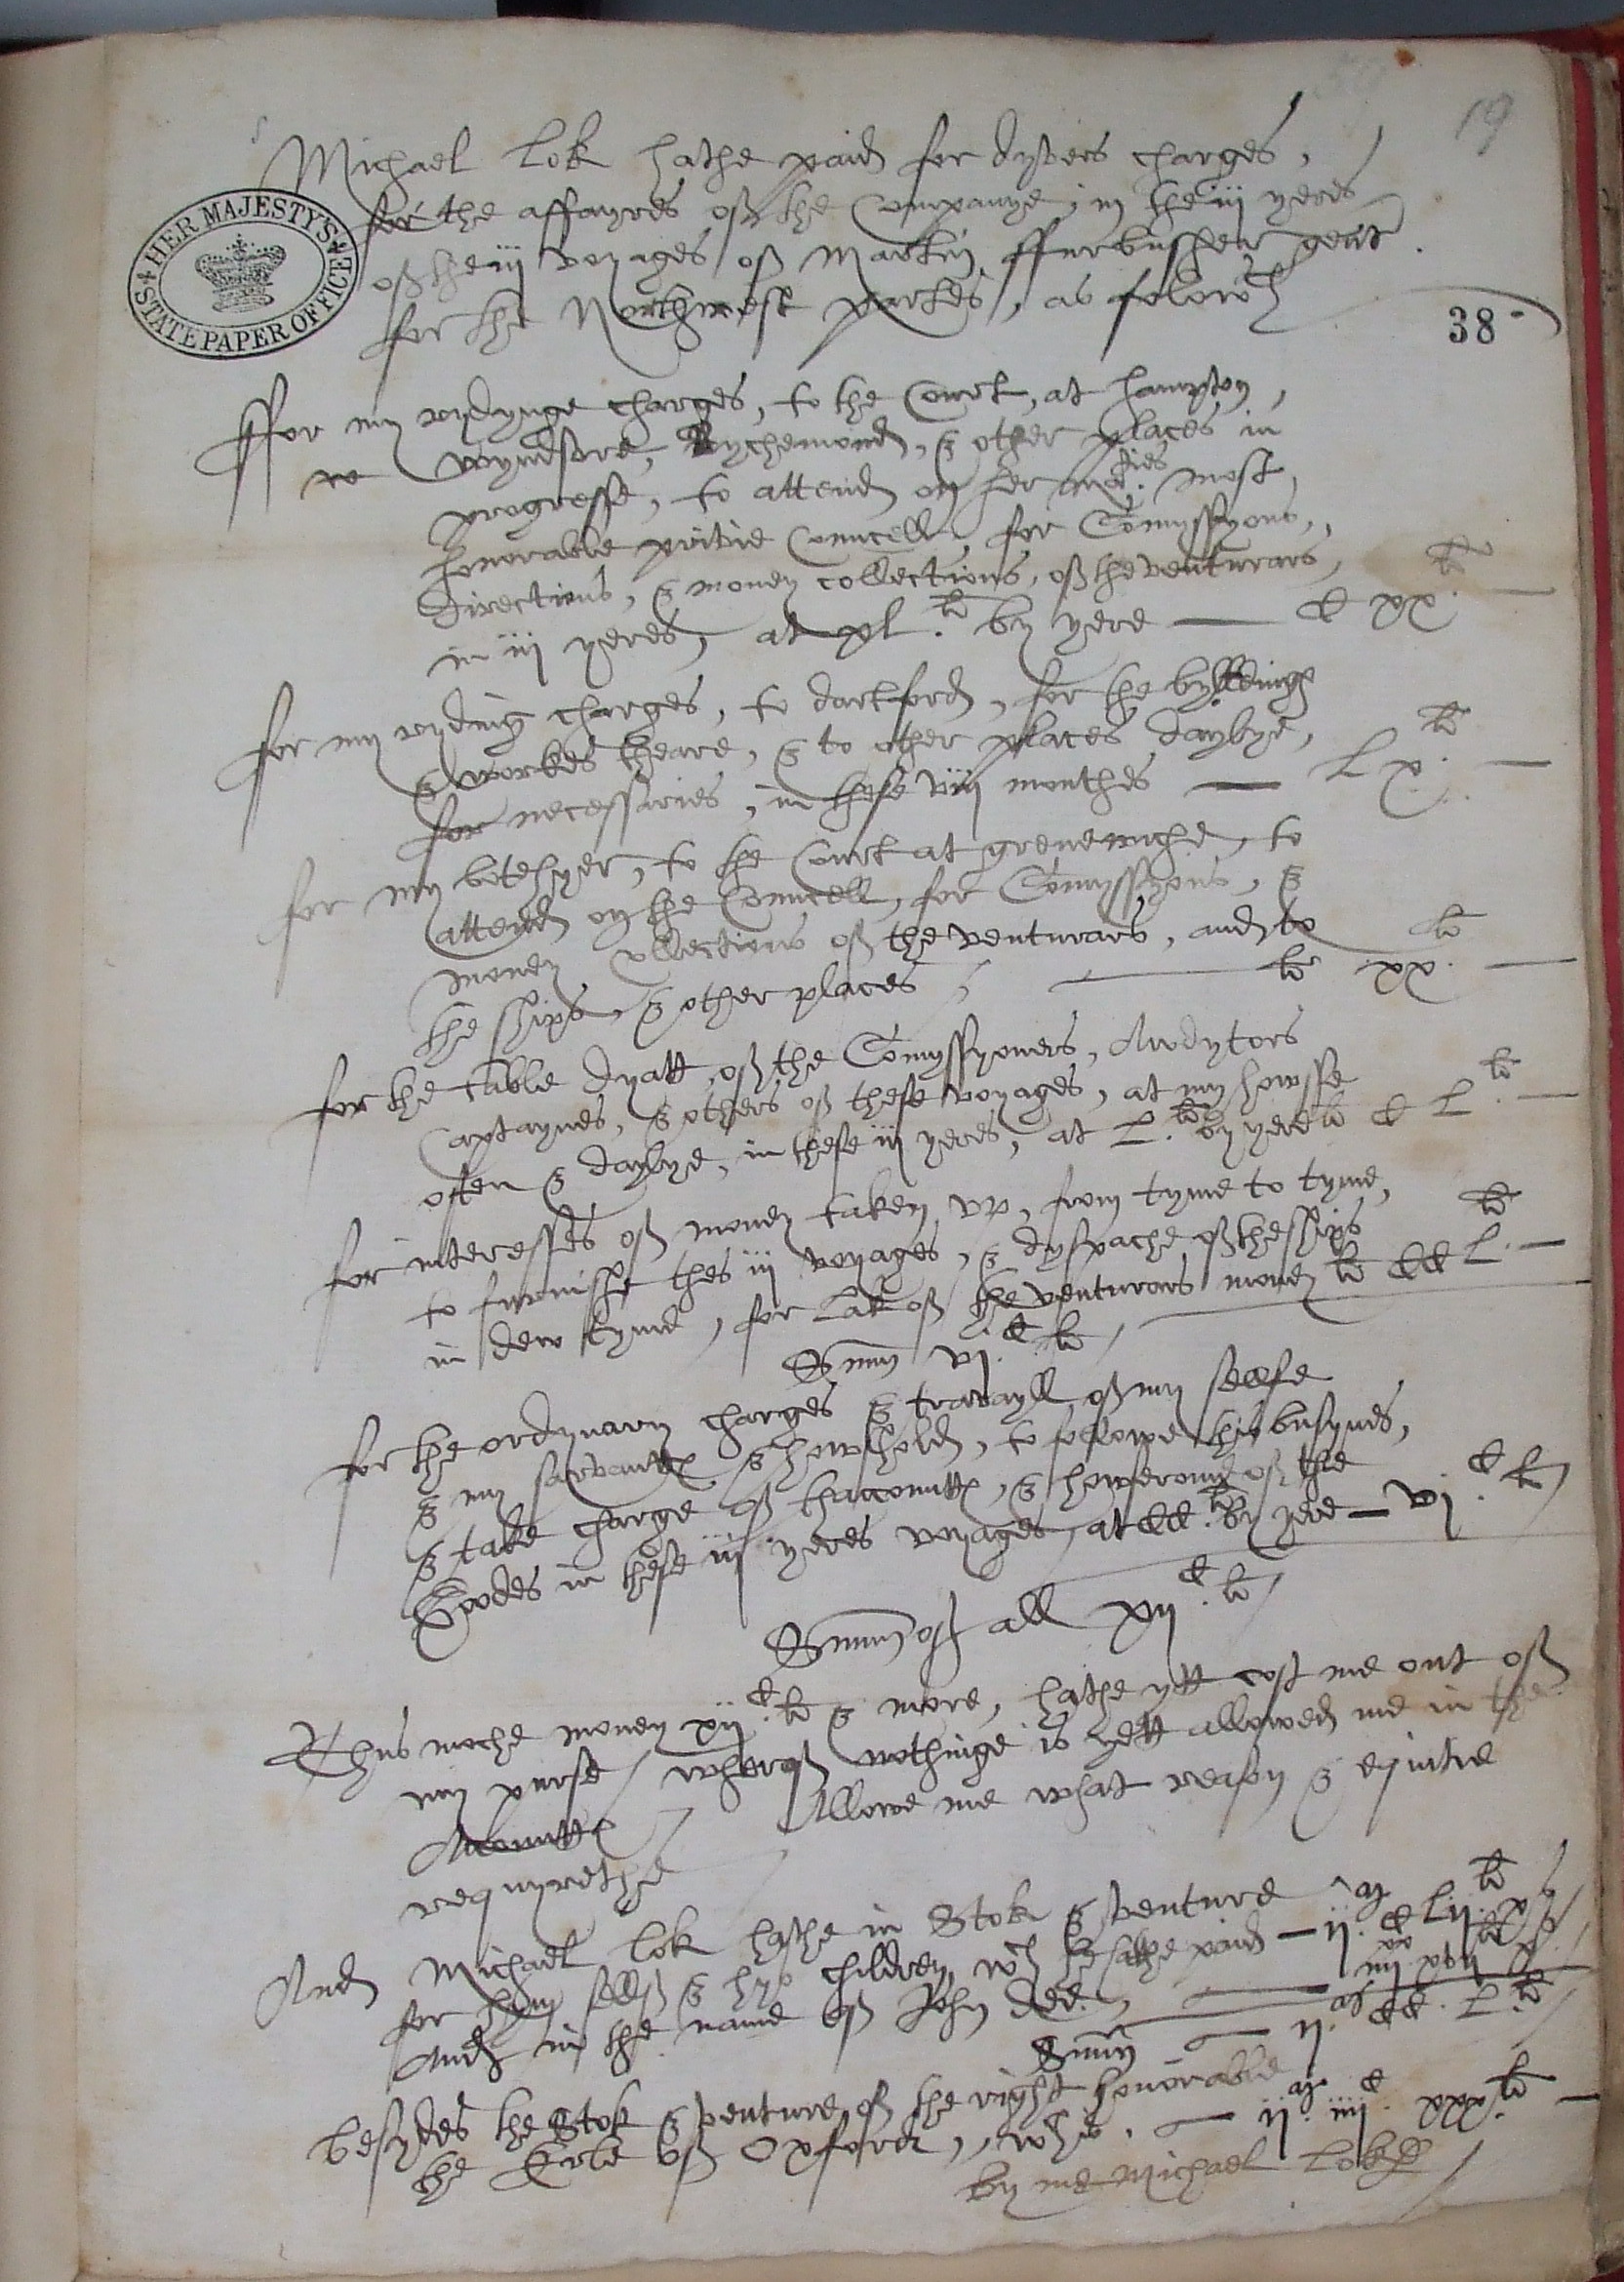 19
Michael Lok hathe paid for dyvers charges,
for the affayres of the Companye, in the iij yeres
of the iij voyages of Martin ffurbusher gent.
for the Northwest partes, as foloweth
HER MAJESTY'S
STATE PAPER OFFICE
38
ffor my rydynge charges, to the Court, at hampton,
wyndsore, Rychemond, & other places in
progresse, to attend on her maties. most
honorable privie Councell, for Comyssyons,
directions, & money collections, of the venturars,
in iij yeres, at xl.li by yere — C xx.li —
for my ryding charges, to dartford, for the byldings
& workes theare, & to other places daylye,
for necessaries, in these viij monthes — Lx.li —
for my botehyer, to the Court at grenewiche, to
attend on the Councell, for Comyssyons, &
money collections of the venturars, and to
the ships, & other places / — li xx.li —
for the table dyatt, of the Comyssyoners, Awdytors
Captaynes, & others of these voyages, at my howsse
often & daylye, in these iij yeres, at L.li by yere li C L.li —
for interesses of money taken up, from tyme to tyme,
to furnishe thes iij voyages, & dyspache of the ships
in dew tyme, for lak of the venturars money li CC L.li —
Summ vj.C li /
for the ordynary charges & travayll of my sellfe
& my sarvantts & howshold, to folowe this busynes,
& take charge of thaccountts, & howseroume of the
Goodes in these iij yeres voyages, at CC.li by yere — vj C.li /
Summ of all xij C.li /
Thus moche money xij C.li & more, hathe ytt cost me out of
my purse / wherof nothinge is yett allowed me in the
Accountts / Allowe me what reason & equitie
requyrethe /
And Michael Lok hathe in Stok & venture
for hym sellf & hys children, wch he hathe paid — ij.M C Lx li
And in the name of John Dee. —
Summ — ij.M CC. L.li /
besydes the Stok & venture of the right honorable
the Erle of Oxford, wch is. — ij.M iiij.C xxx.li —
by me Michael Lok /